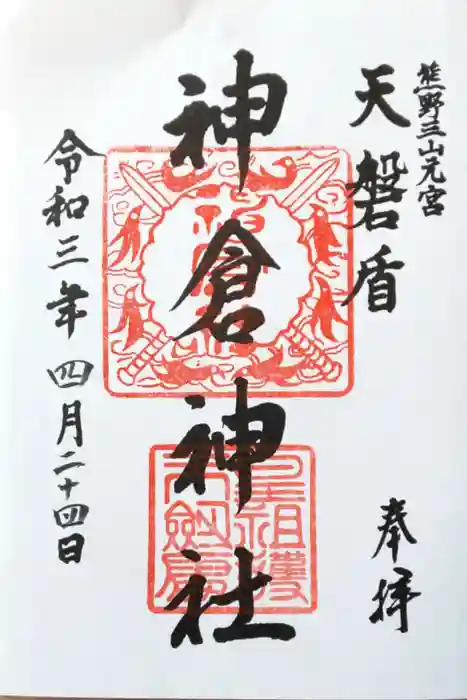 熊野三山元宮
天磐盾
奉拝
神倉神社
令和三年四月二十四日